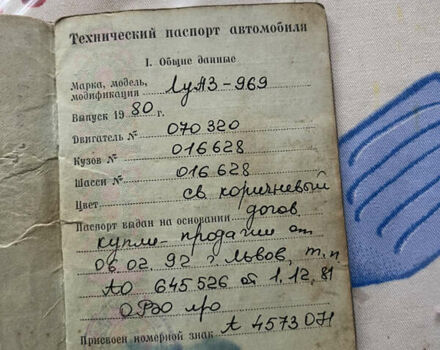 Технический паспорт автомобиля
I. Общие данные
Марка, модель,
модификация ЛуАЗ-969
Выпуск 1980 г.
Двигатель № 070320
Кузов № 016628
Шасси № 016628
Цвет св. коричневый
Паспорт выдан на основании догов.
купли-продажи от
06.02.92 г. Львов, т.п.
АО 645526 от 1.12.81
ОРЭО
Присвоен номерной знак А 4573 ОН